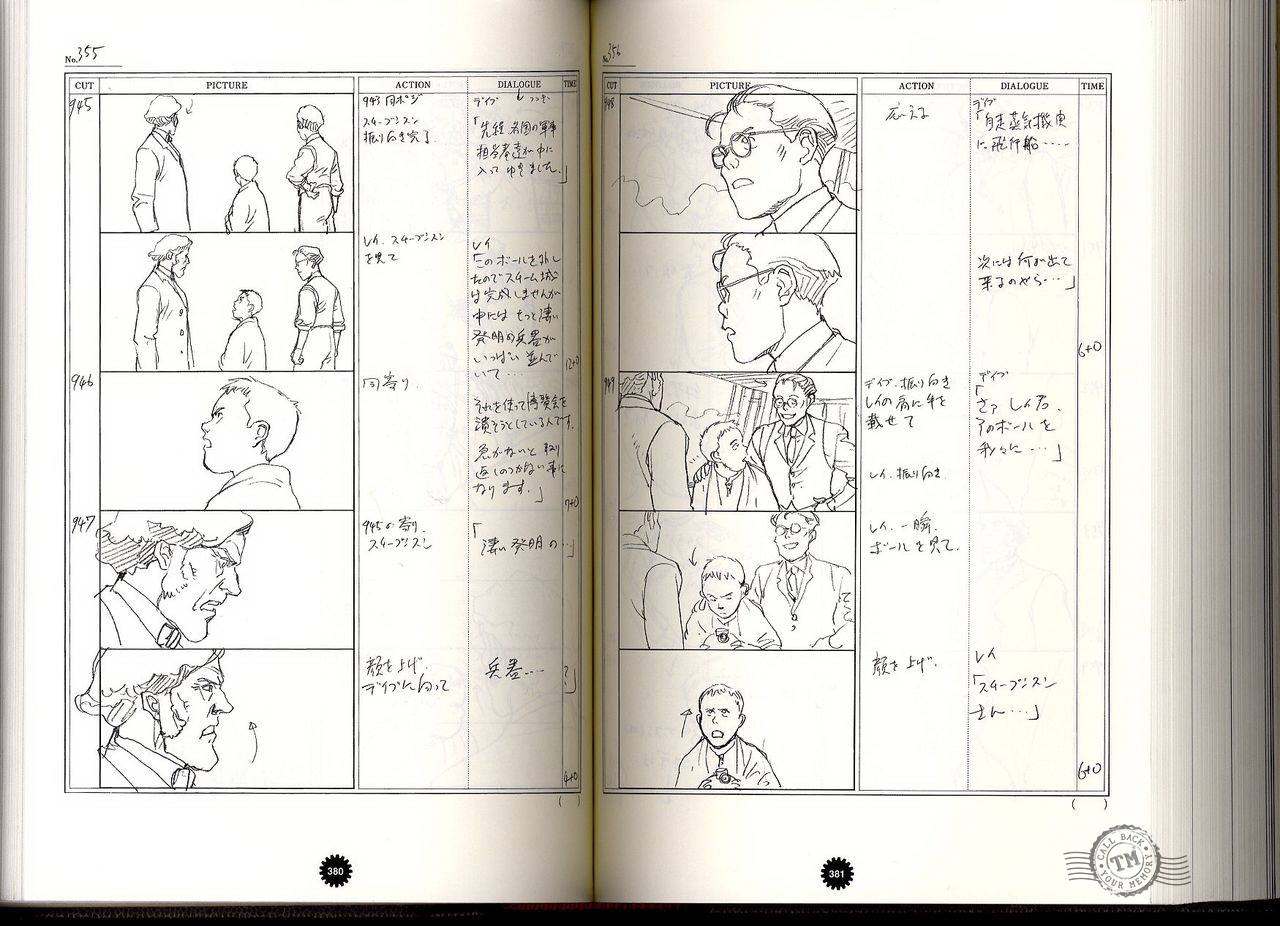 No.355
CUT PICTURE ACTION DIALOGUE TIME
945
943 同ポジ
スチーブンスン
振り向き完了.
デイブ
「先程 各国の軍事
担当者達が中に
入って ゆきました.」
レイ. スチーブンスン
を見て
レイ
「このボールを外し
たのでスチーム城
は完成しませんが
中には もっと凄い
発明の兵器が
いっぱい 並んで
いて…
12+0
946
同寄り.
それを使って博覧会を
潰そうとしているんです.
急がないと 取り
返しのつかない事に
なります.」
7+0
947
945の寄り.
スチーブンスン
「凄い発明の…
顔を上げ.
デイブに向って
兵器……?」
4+0
( )
380
No.356
CUT PICTURE ACTION DIALOGUE TIME
948
応える
デイブ
「自走蒸気機関
に飛行船……
次には 何が出て
来るのやら…」
6+0
949
デイブ. 振り向き
レイの肩に手を
載せて
レイ. 振り向き
デイブ
「さァ レイ君.
そのボールを
我々に…」
レイ. 一瞬.
ボールを見て.
顔を上げ.
レイ
「スチーブンスン
さん…」
6+0
( )
381
CALL BACK
TM
YOUR MEMORY